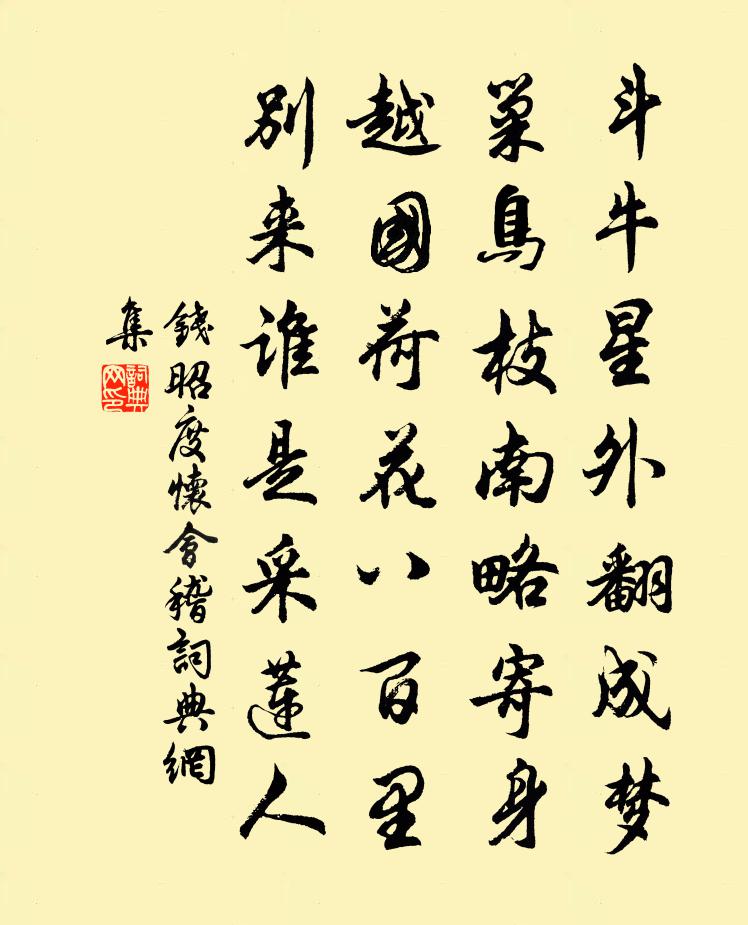 斗牛星外翻成梦
巢鳥枝南略寄身
越國荷花八百里
别来谁是采蓮人
錢昭度懷會稽詞典網
集
詞典
网印